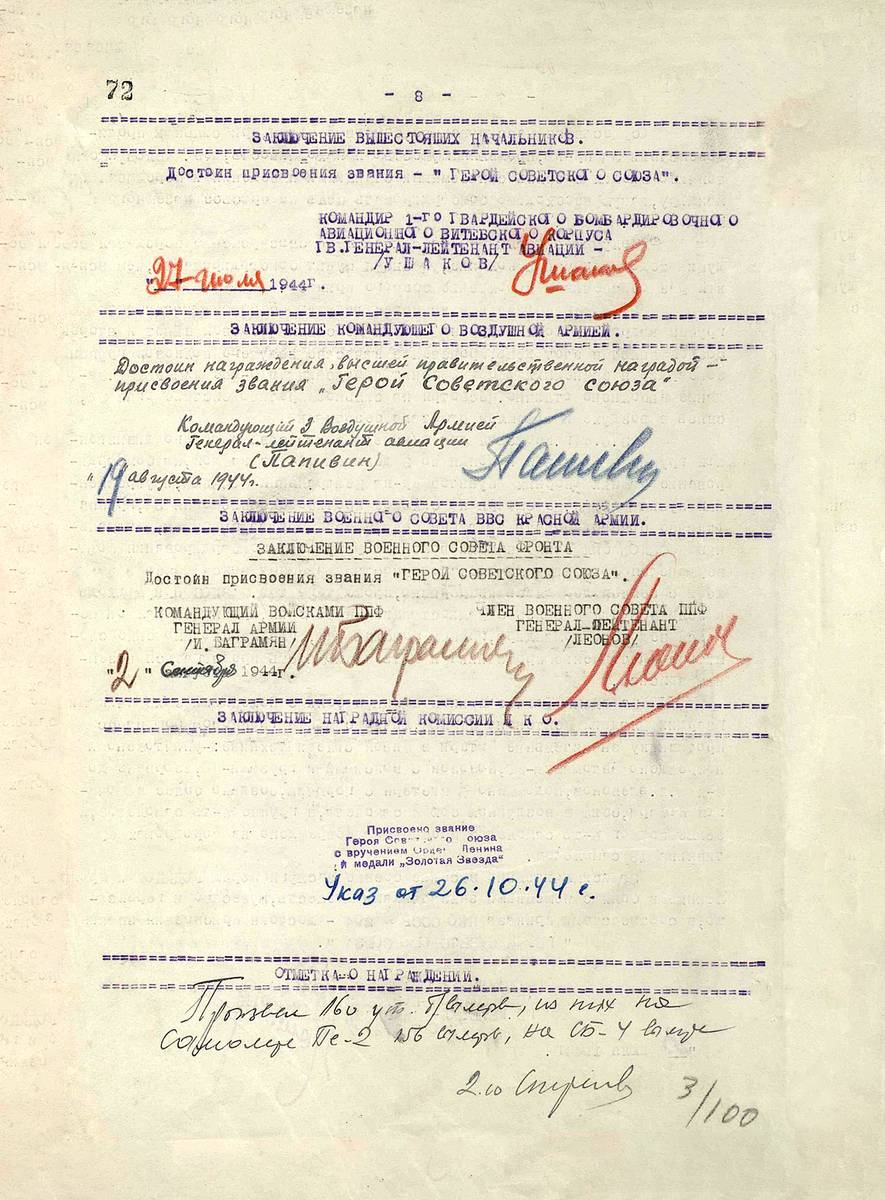 72
- 8 -
ЗАКЛЮЧЕНИЕ ВЫШЕСТОЯЩИХ НАЧАЛЬНИКОВ.
Достоин присвоения звания - "ГЕРОЙ СОВЕТСКОГО СОЮЗА".
КОМАНДИР 1-ГО ГВАРДЕЙСКОГО БОМБАРДИРОВОЧНОГО
АВИАЦИОННОГО ВИТЕБСКОГО КОРПУСА
ГВ.ГЕНЕРАЛ-ЛЕЙТЕНАНТ АВИАЦИИ -
/УШАКОВ/ Ушаков
"27" июля 1944г.
ЗАКЛЮЧЕНИЕ КОМАНДУЮЩЕГО ВОЗДУШНОЙ АРМИЕЙ.
Достоин награждения высшей правительственной наградой -
присвоения звания „Герой Советского союза"
Командующий 3 Воздушной Армией
Генерал-лейтенант авиации
(Папивин) Папивин
"19 августа 1944г.
ЗАКЛЮЧЕНИЕ ВОЕННОГО СОВЕТА ВВС КРАСНОЙ АРМИИ.
ЗАКЛЮЧЕНИЕ ВОЕННОГО СОВЕТА ФРОНТА
Достоин присвоения звания "ГЕРОЙ СОВЕТСКОГО СОЮЗА".
КОМАНДУЮЩИЙ ВОЙСКАМИ ППФ ЧЛЕН ВОЕННОГО СОВЕТА ППФ
ГЕНЕРАЛ АРМИИ ГЕНЕРАЛ-ЛЕЙТЕНАНТ
/И.БАГРАМЯН/ ИБаграмян /ЛЕОНОВ/ Леонов
"2" Сентября 1944г.
ЗАКЛЮЧЕНИЕ НАГРАДНОЙ КОМИССИИ Н К О.
Присвоено звание
Героя Советского Союза
с вручением Ордена Ленина
и медали „Золотая Звезда"
Указ от 26.10.44 г.
ОТМЕТКА О НАГРАЖДЕНИИ.
Произвел 160 вылетов, из них на
самолете Пе-2 156 вылетов, на СБ-4 вылета
3/100